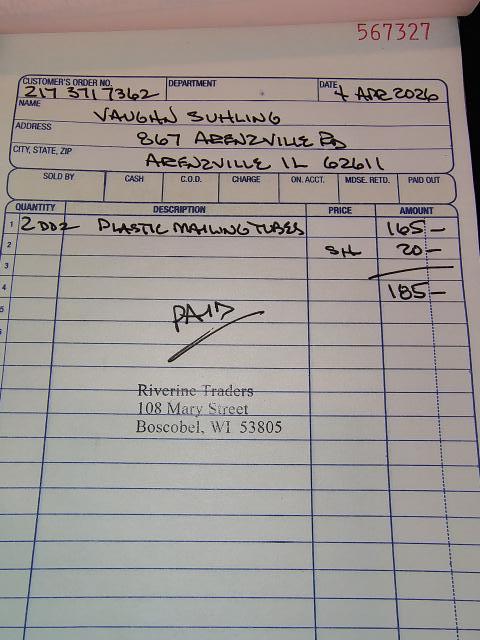 567327
CUSTOMER'S ORDER NO. DEPARTMENT DATE
217 371 7362 4 APR 2026
NAME VAUGHN SUHLING
ADDRESS 867 ARENZVILLE RD
CITY, STATE, ZIP ARENZVILLE IL 62611
SOLD BY CASH C.O.D. CHARGE ON. ACCT. MDSE. RETD. PAID OUT
QUANTITY DESCRIPTION PRICE AMOUNT
1 2 DOZ PLASTIC MAILING TUBES 165 —
2 SH 20 —
3
4 185 —
5
PAID
6
7
Riverine Traders
8 108 Mary Street
Boscobel, WI 53805